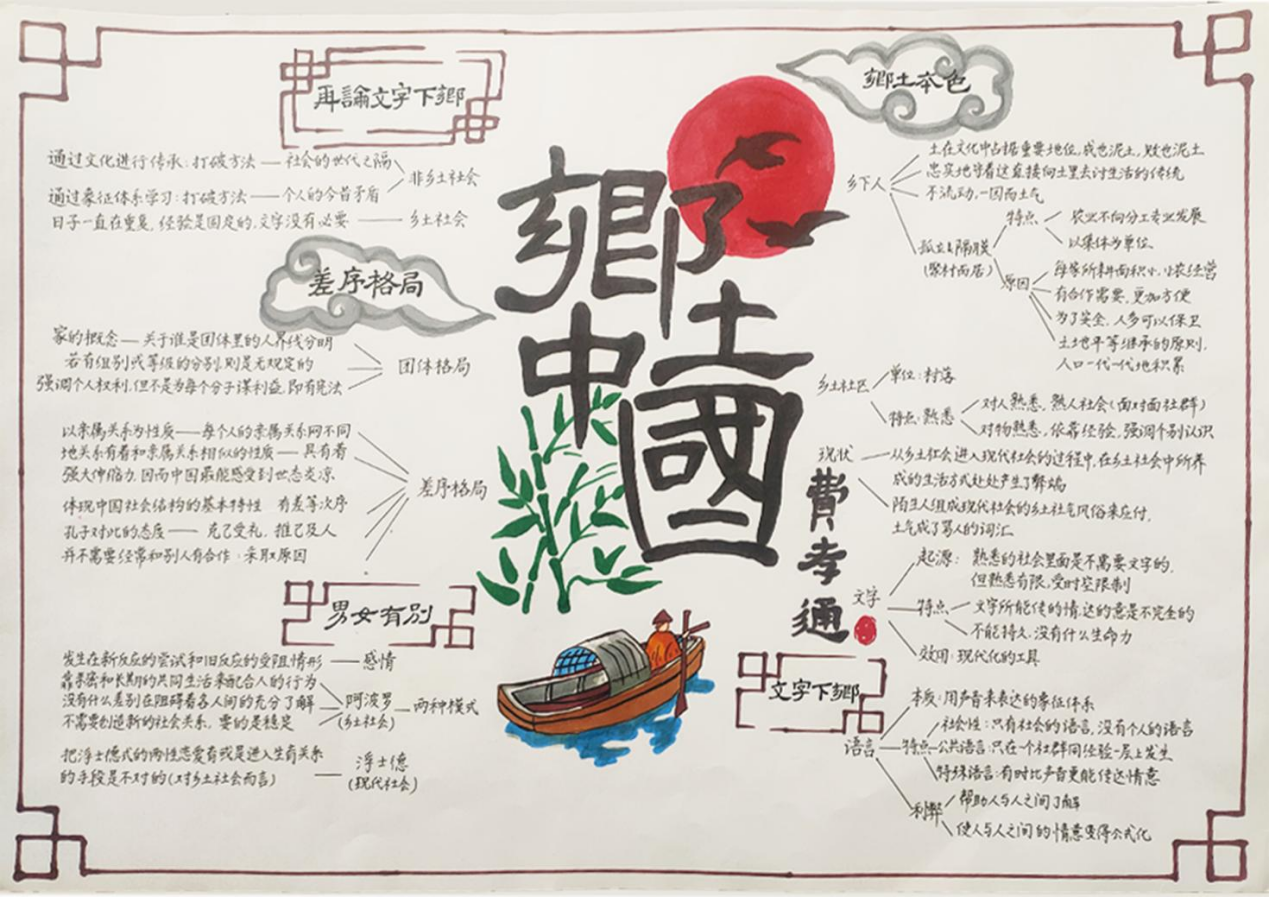 再論文字下鄉
通过文化进行传承:打破方法—社会的世代之隔
非乡土社会
通过象征体系学习:打破方法—个人的今昔矛盾
日子一直在重复,经验是固定的,文字没有必要—乡土社会
差序格局
家的概念—关于谁是团体里的人界线分明
若有组别或等级的分别,则是先规定的
强调个人权利,但不是为每个分子谋利益,即有宪法
团体格局
以亲属关系为性质—每个人的亲属关系网不同
地关系有着和亲属关系相似的性质—具有着
强大伸缩力,因而中国最能感受到世态炎凉.
体现中国社会结构的基本特性 有差等次序
孔子对此的态度—克己复礼,推己及人
并不需要经常和别人有合作:采取
原因
差序格局
男女有別
发生在新反应的尝试和旧反应的受阻情形—感情
靠亲密和长期的共同生活来配合人的行为
没有什么差别在阻碍着各人间的充分了解
不需要创造新的社会关系,要的是稳定
阿波罗
(乡土社会)
两种模式
把浮士德式的两性恋爱看成是进入生育关系
的手段是不对的(对乡土社会而言)
浮士德
(现代社会)
鄉土中國
費孝通
鄉土本色
乡下人
土在文化中占据重要地位,成也泥土,败也泥土
忠实地守着这直接向土里去讨生活的传统
不流动,—因而土气
孤立与隔膜
(聚村而居)
特点
农业不向分工专业发展
以集体为单位
原因
每家所耕面积小,小农经营
有合作需要,更加方便
为了安全,人多可以保卫
土地平等继承的原则,
人口一代一代地积累
乡土社区
单位:村落
特点:熟悉
对人熟悉,熟人社会(面对面社群)
对物熟悉,依靠经验,强调个别认识
现状
从乡土社会进入现代社会的过程中,在乡土社会中所养
成的生活方式处处产生了弊端
陌生人组成现代社会的乡土社会风俗来应付,
土气成了骂人的词汇
文字
起源:熟悉的社会里面是不需要文字的,
但熟悉有限,受时空限制
特点—文字所能传的情,达的意是不完全的
不能持久,没有什么生命力
效用:现代化的工具
文字下鄉
语言
本质:用声音来表达的象征体系
特点
社会性:只有社会的语言,没有个人的语言
公共语言:只在一个社群同经验一层上发生
特殊语言:有时比声音更能传达情意
利弊
帮助人与人之间了解
使人与人之间的情意变得公式化